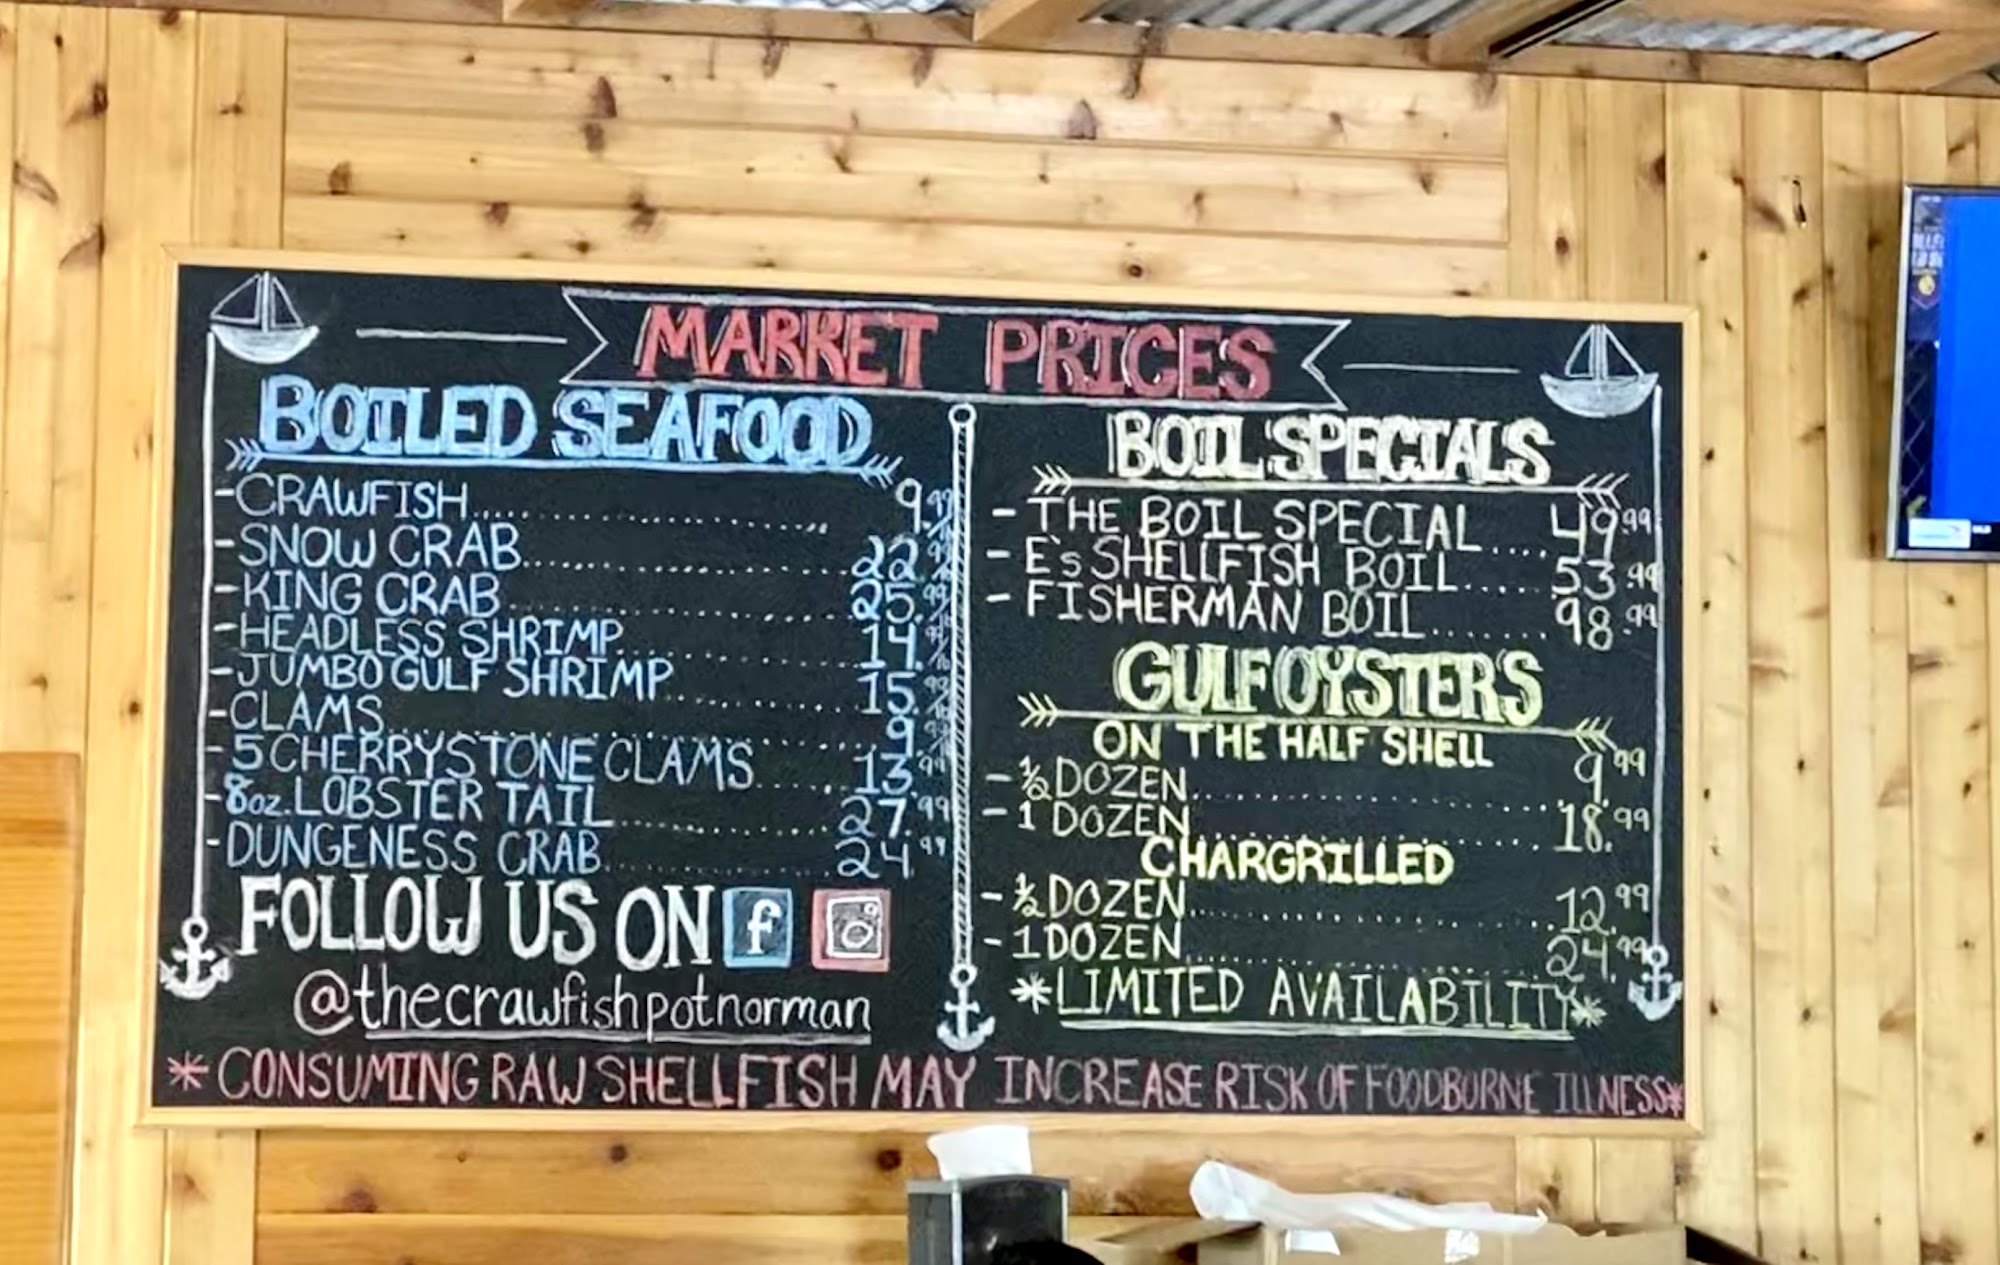 MARKET PRICES
BOILED SEAFOOD
-CRAWFISH................................ 9.99/lb
-SNOW CRAB............................ 22.99/lb
-KING CRAB............................. 25.99/lb
-HEADLESS SHRIMP................... 14.99/lb
-JUMBO GULF SHRIMP............... 15.99/lb
-CLAMS.................................... 9.99/lb
-5 CHERRYSTONE CLAMS......... 13.99
-8oz. LOBSTER TAIL.................. 27.99
-DUNGENESS CRAB................... 24.99
FOLLOW US ON f
@thecrawfishpotnorman
BOIL SPECIALS
- THE BOIL SPECIAL.... 49.99
- E's SHELLFISH BOIL..... 53.99
- FISHERMAN BOIL....... 98.99
GULF OYSTERS
ON THE HALF SHELL
- ½ DOZEN............................ 9.99
- 1 DOZEN............................ 18.99
CHARGRILLED
- ½ DOZEN............................ 12.99
- 1 DOZEN............................ 24.99
*LIMITED AVAILABILITY*
*CONSUMING RAW SHELLFISH MAY INCREASE RISK OF FOODBORNE ILLNESS*